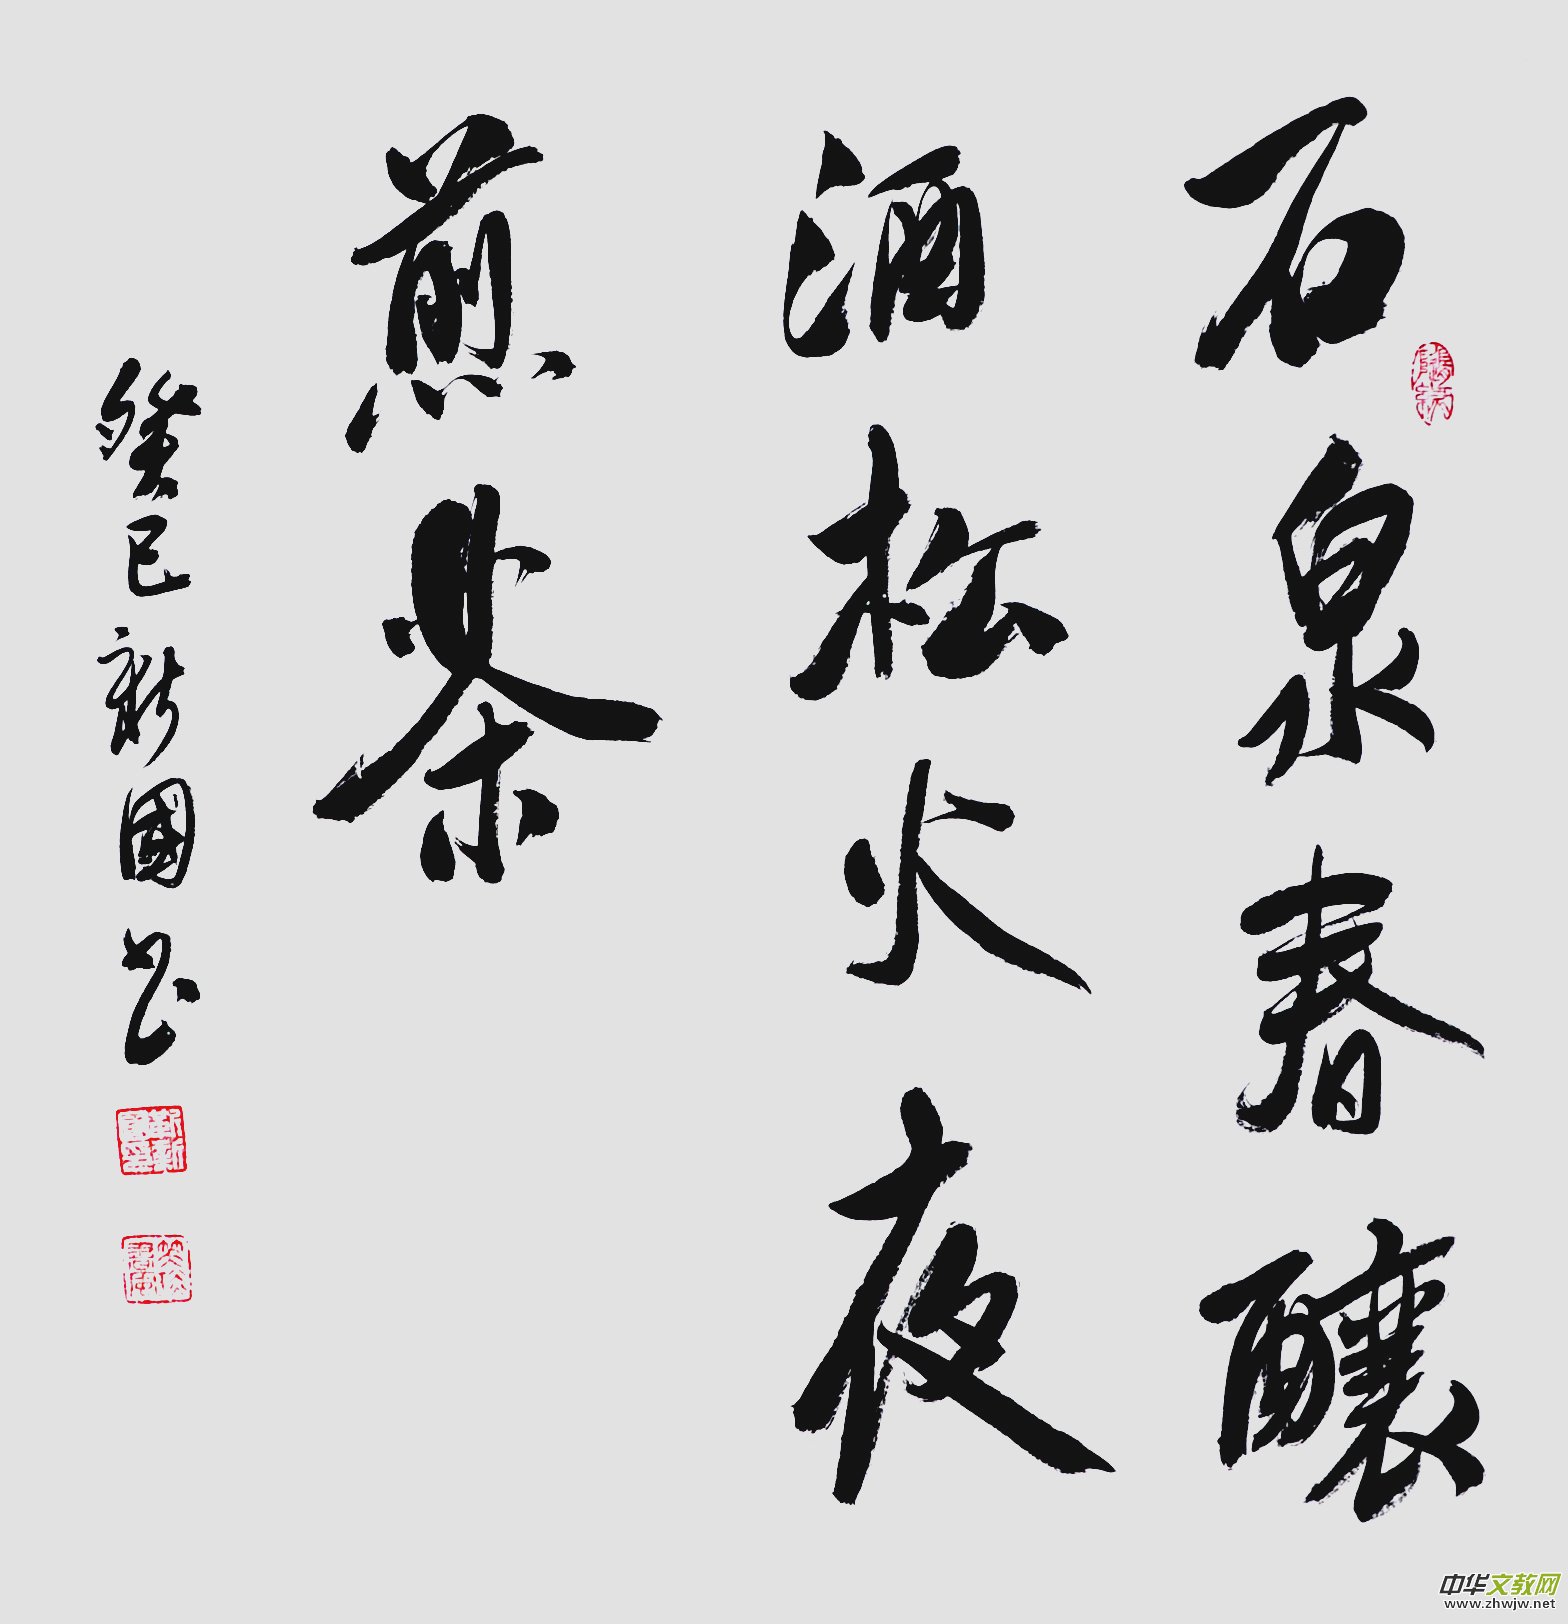 石泉春釀
酒松火夜
煎茶
癸巳新國书
中华文教网
www.zhwjw.net